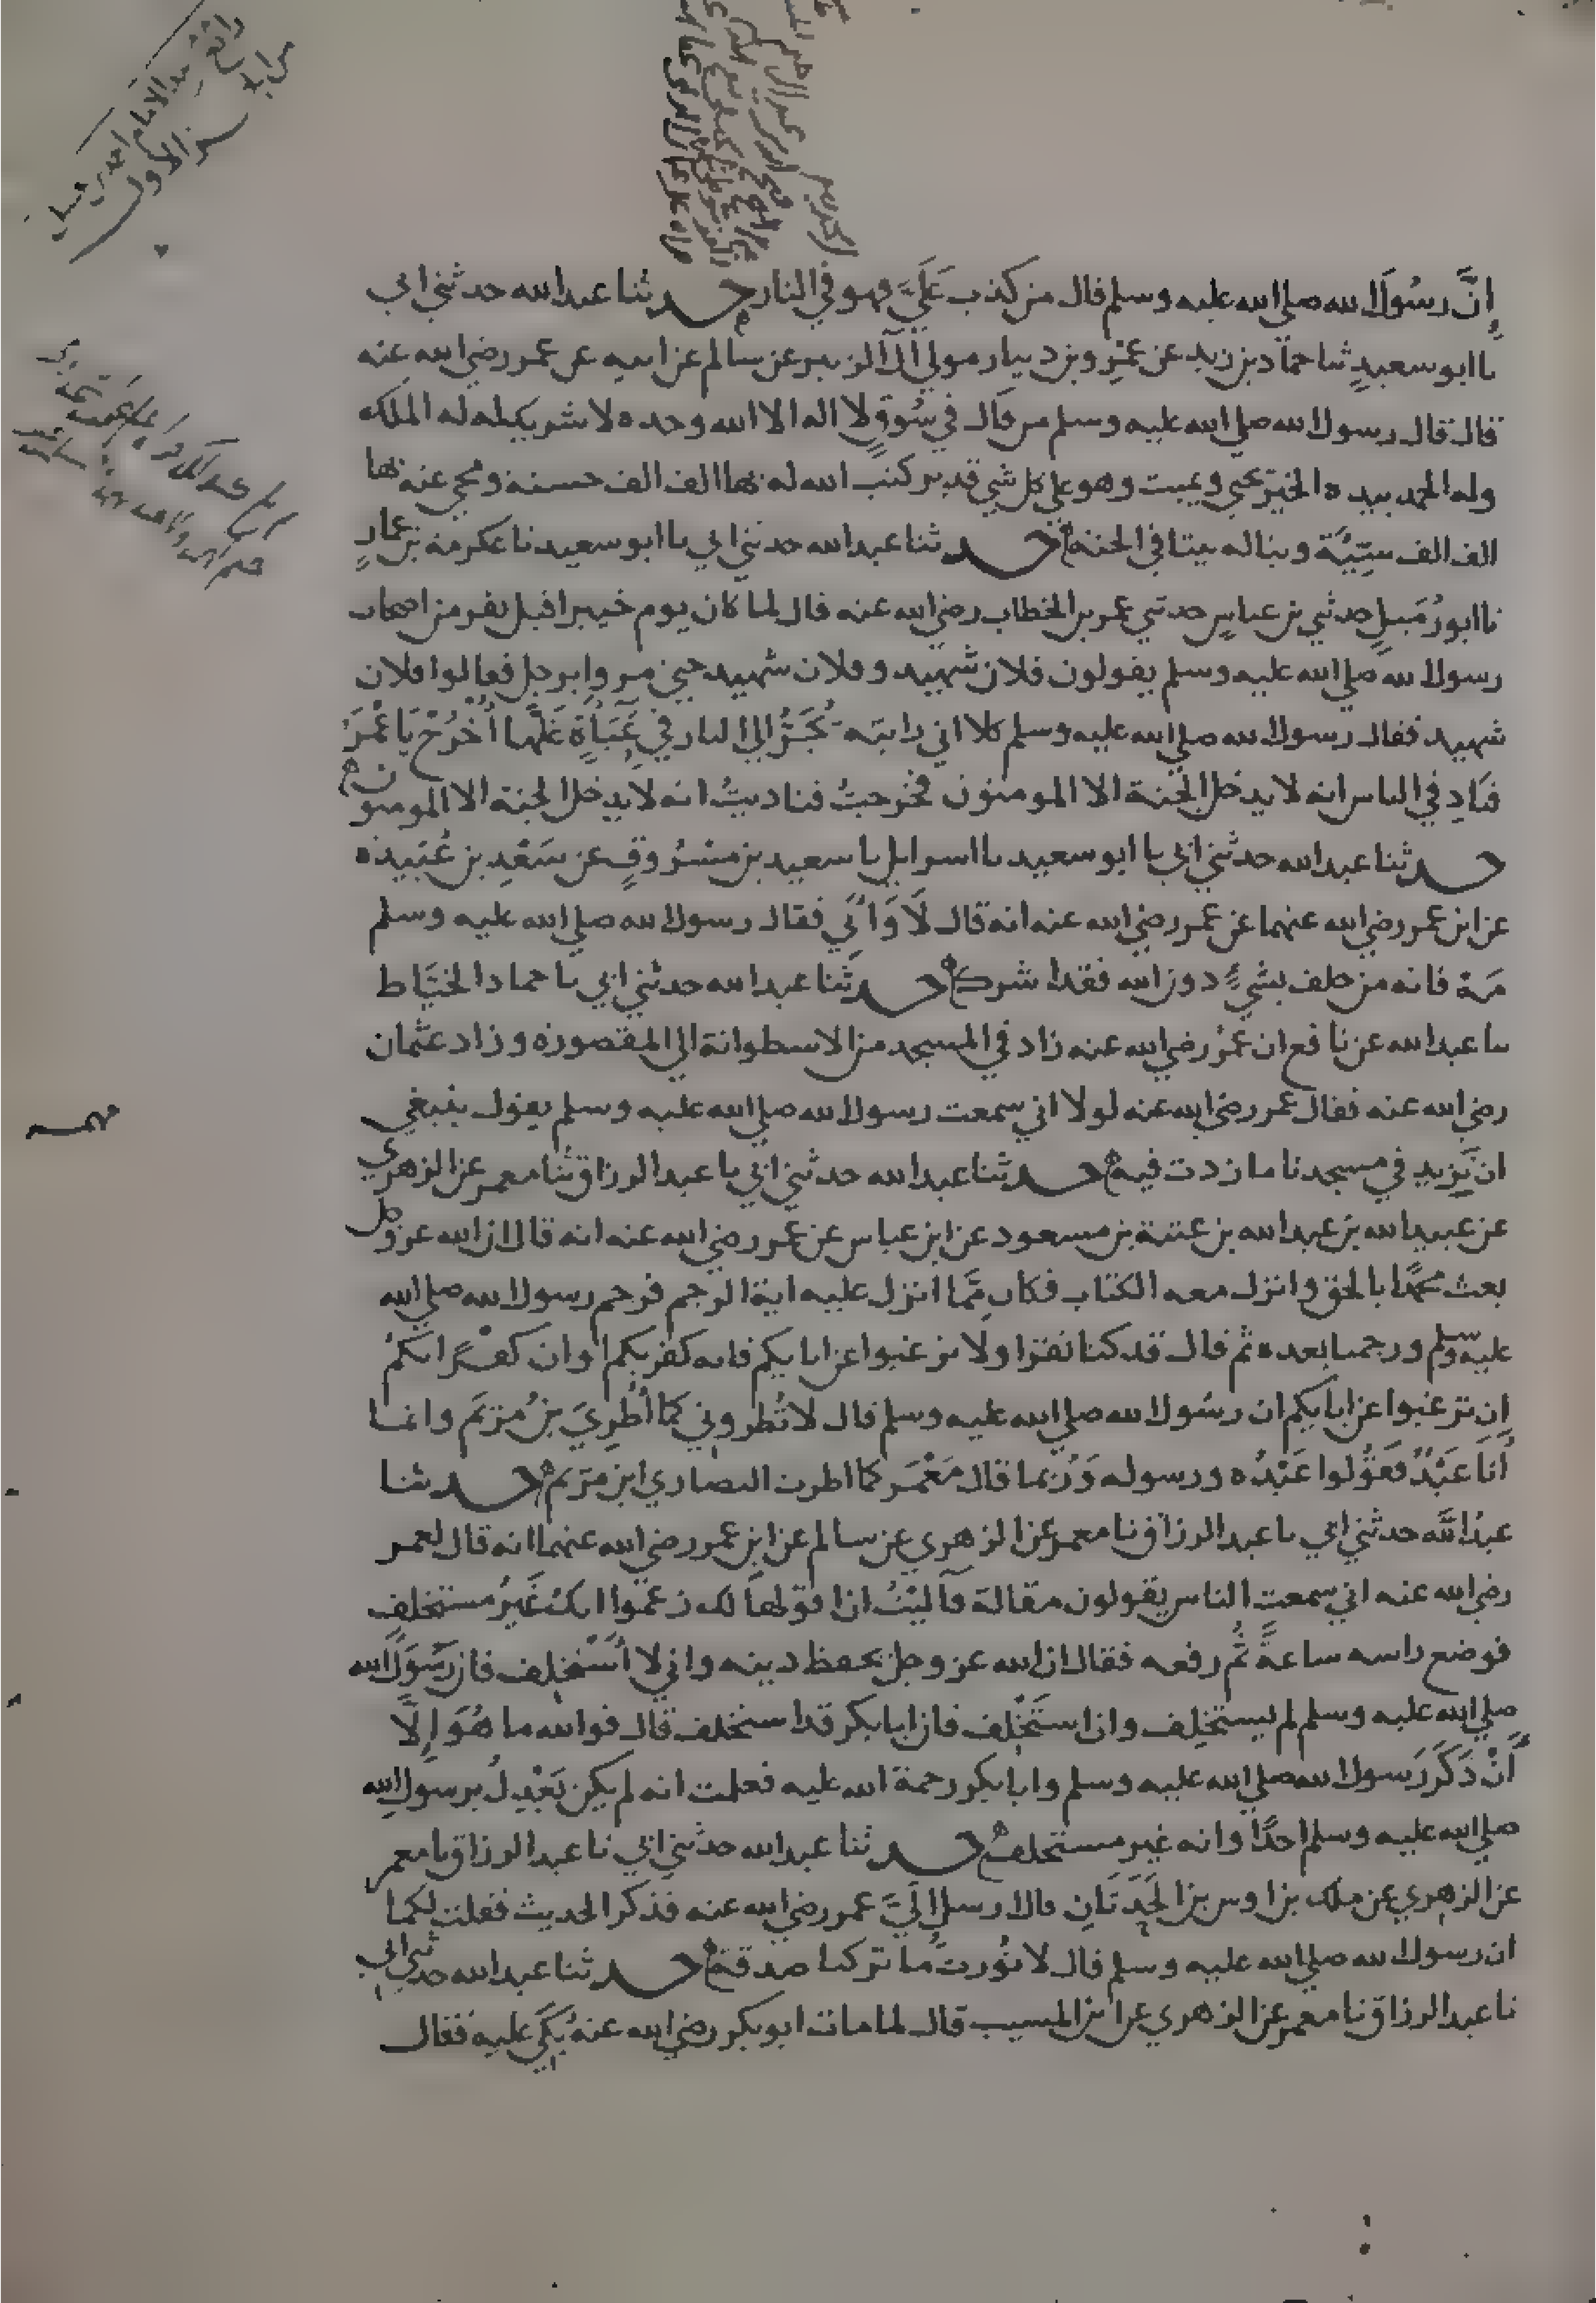 رابع
من الامام احمد بن حنبل
الاول
إنَّ رسُولَ الله صلى الله عليه وسلم قال من كذب عَلَيَّ فهو في النار حدثنا عبد الله حدثني ابي
نا ابو سعيدٍ ثنا حمّاد بن زيد عن عمْرِو بن دينار مولي آل الزبير عن سالم عن ابيه عن عمر رضي الله عنه
قال قال رسول الله صلي الله عليه وسلم من قال في سُوقٍ لا اله الا الله وحده لا شريك له له الملك
وله الحمد بيده الخير يحيي ويميت وهو علي كل شي قدير كتب الله له بها الف الف حسنة ومحي عنه بها
الف الف سيّئة وبنا له بيتا في الجنة حدثنا عبد الله حدثني ابي نا ابو سعيد نا عكرمة بن عمارٍ
نا ابو زُمَيلٍ حدثني بن عباسٍ حدثني عمر بن الخطاب رضي الله عنه قال لما كان يوم خيبر اقبل نفر من اصحاب
رسول الله صلي الله عليه وسلم يقولون فلان شهيد وفلان شهيد حتي مروا برجل فقالوا فلان
شهيد فقال رسول الله صلي الله عليه وسلم كلا اني رايته يُجَرُّ الي النار في عَبَاةٍ غَلَّها أُخْرُجْ يَا عُمَرُ
فنَادِ في الناس انه لا يدخل الجنة الا المومنون فخرجتُ فناديتُ انه لا يدخل الجنة الا المومنون
حدثنا عبد الله حدثني ابي نا ابو سعيد نا اسرايل نا سعيد بن مسْرُوقٍ عن سَعْدِ بن عُبَيدة
عن ابن عمر رضي الله عنهما عن عمر رضي الله عنه انه قال لَا وَأَبي فقال رسول الله صلي الله عليه وسلم
مَهْ فانه من حلف بشيءٍ دون الله فقد اشرك حدثنا عبد الله حدثني ابي نا حماد الخيّاط
نا عبد الله عن نافع ان عمرَ رضي الله عنه زاد في المسجد من الاسطوانة الي المقصورة وزاد عثمان
رضي الله عنه فقال عمر رضي الله عنه لولا اني سمعت رسول الله صلي الله عليه وسلم يقول ينبغي
ان يَزيد في مسجدنا ما زدت فيه حدثنا عبد الله حدثني ابي نا عبد الرزاق ثنا معمر عن الزهري
عن عبيد الله بن عبد الله بن عتبة بن مسعود عن ابن عباس عن عمر رضي الله عنه انه قال ان الله عز وجل
بعث محمدًا بالحق وانزل معه الكتاب فكان مِمَّا انزل عليه اية الرجم فرجم رسول الله صلي الله
عليه وسلم ورجمنا بعده ثم قال قد كنا نقرا ولا ترغبوا عن ابايكم فانه كفر بكم او ان كفْرًا بكمُ
ان ترغبوا عن ابايكم ان رسُول الله صلي الله عليه وسلم قال لا تُطروني كما أُطرِيَ بنُ مَرْيَم وانما
أنَا عَبْدٌ فقُولوا عَبْدُه ورسوله وَرُبما قال مَعْمَر كما اطرت النصاري ابن مَرْيَم حدثنا
عبدُ الله حدثني ابي نا عبد الرزاق نا معمر عن الزهري عن سالم عن ابن عمر رضي الله عنهما انه قال لعمر
رضي الله عنه اني سمعت الناس يقولون مقالة فآليْتُ ان اقولهَا لك زعموا انك غَيرُ مستخلف
فوضع راسه ساعةً ثُم رفعه فقال ان الله عز وجل يحفظ دينه واني لا أسْتَخلف فان رسُولَ الله
صلي الله عليه وسلم لم يستخلِف وان استَخْلِف فان ابا بكر قد استخلف قال فوالله ما هُوَ إلَّا
أنْ ذَكَرَ رَسولَ الله صلي الله عليه وسلم وابا بكر رحمة الله عليه فعلمت انه لم يكن يَعْدِلُ برسول الله
صلي الله عليه وسلم احدًا وانه غير مستخلف حدثنا عبد الله حدثني ابي نا عبد الرزاق نا معمر
عن الزهري عن ملك بن اوس بن الحَدَثَانِ قال ارسل اليَّ عمر رضي الله عنه فذكر الحديث فقلت لكما
ان رسول الله صلي الله عليه وسلم قال لا نُورث ما تركنا صدقة حدثنا عبد الله حدثني ابي
نا عبد الرزاق نا معمر عن الزهري عن ابن المسيب قال لما مات ابو بكر رضي الله عنه بُكِيَ عليه فقال